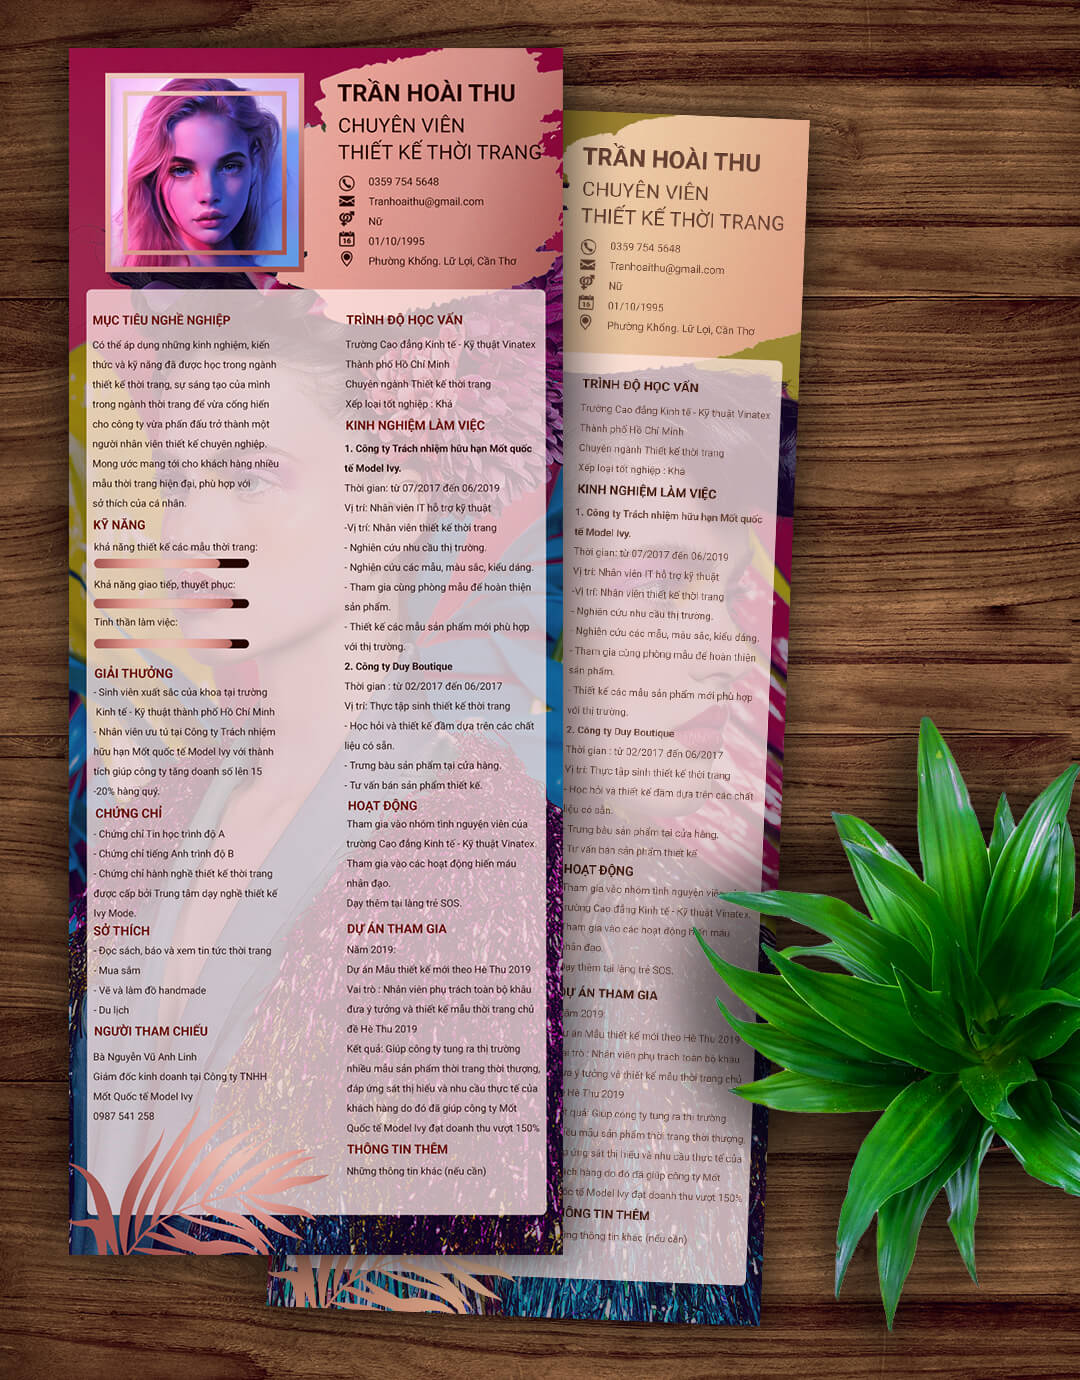 TRẦN HOÀI THU
CHUYÊN VIÊN
THIẾT KẾ THỜI TRANG
0359 754 5648
Tranhoaithu@gmail.com
Nữ
16
01/10/1995
Phường Khống. Lữ Lợi, Cần Thơ
MỤC TIÊU NGHỀ NGHIỆP
Có thể áp dụng những kinh nghiệm, kiến
thức và kỹ năng đã được học trong ngành
thiết kế thời trang, sự sáng tạo của mình
trong ngành thời trang để vừa cống hiến
cho công ty vừa phấn đấu trở thành một
người nhân viên thiết kế chuyên nghiệp.
Mong ước mang tới cho khách hàng nhiều
mẫu thời trang hiện đại, phù hợp với
sở thích của cá nhân.
KỸ NĂNG
khả năng thiết kế các mẫu thời trang:
Khả năng giao tiếp, thuyết phục:
Tinh thần làm việc:
GIẢI THƯỞNG
- Sinh viên xuất sắc của khoa tại trường
Kinh tế - Kỹ thuật thành phố Hồ Chí Minh
- Nhân viên ưu tú tại Công ty Trách nhiệm
hữu hạn Mốt quốc tế Model Ivy với thành
tích giúp công ty tăng doanh số lên 15
-20% hàng quý.
CHỨNG CHỈ
- Chứng chỉ Tin học trình độ A
- Chứng chỉ tiếng Anh trình độ B
- Chứng chỉ hành nghề thiết kế thời trang
được cấp bởi Trung tâm dạy nghề thiết kế
Ivy Mode.
SỞ THÍCH
- Đọc sách, báo và xem tin tức thời trang
- Mua sắm
- Vẽ và làm đồ handmade
- Du lịch
NGƯỜI THAM CHIẾU
Bà Nguyễn Vũ Anh Linh
Giám đốc kinh doanh tại Công ty TNHH
Mốt Quốc tế Model Ivy
0987 541 258
TRÌNH ĐỘ HỌC VẤN
Trường Cao đẳng Kinh tế - Kỹ thuật Vinatex
Thành phố Hồ Chí Minh
Chuyên ngành Thiết kế thời trang
Xếp loại tốt nghiệp : Khá
KINH NGHIỆM LÀM VIỆC
1. Công ty Trách nhiệm hữu hạn Mốt quốc
tế Model Ivy.
Thời gian: từ 07/2017 đến 06/2019
Vị trí: Nhân viên IT hỗ trợ kỹ thuật
-Vị trí: Nhân viên thiết kế thời trang
- Nghiên cứu nhu cầu thị trường.
- Nghiên cứu các mẫu, màu sắc, kiểu dáng.
- Tham gia cùng phòng mẫu để hoàn thiện
sản phẩm.
- Thiết kế các mẫu sản phẩm mới phù hợp
với thị trường.
2. Công ty Duy Boutique
Thời gian : từ 02/2017 đến 06/2017
Vị trí: Thực tập sinh thiết kế thời trang
- Học hỏi và thiết kế đầm dựa trên các chất
liệu có sẵn.
- Trưng bàu sản phẩm tại cửa hàng.
- Tư vấn bán sản phẩm thiết kế.
HOẠT ĐỘNG
Tham gia vào nhóm tình nguyện viên của
trường Cao đẳng Kinh tế - Kỹ thuật Vinatex.
Tham gia vào các hoạt động hiến máu
nhân đạo.
Dạy thêm tại làng trẻ SOS.
DỰ ÁN THAM GIA
Năm 2019:
Dự án Mẫu thiết kế mới theo Hè Thu 2019
Vai trò : Nhân viên phụ trách toàn bộ khâu
đưa ý tưởng và thiết kế mẫu thời trang chủ
đề Hè Thu 2019
Kết quả: Giúp công ty tung ra thị trường
nhiều mẫu sản phẩm thời trang thời thượng,
đáp ứng sát thị hiếu và nhu cầu thực tế của
khách hàng do đó đã giúp công ty Mốt
Quốc tế Model Ivy đạt doanh thu vượt 150%
THÔNG TIN THÊM
Những thông tin khác (nếu cần)
TRẦN HOÀI THU
CHUYÊN VIÊN
THIẾT KẾ THỜI TRANG
0359 754 5648
Tranhoaithu@gmail.com
Nữ
16
01/10/1995
Phường Khống. Lữ Lợi, Cần Thơ
TRÌNH ĐỘ HỌC VẤN
Trường Cao đẳng Kinh tế - Kỹ thuật Vinatex
Thành phố Hồ Chí Minh
Chuyên ngành Thiết kế thời trang
Xếp loại tốt nghiệp : Khá
KINH NGHIỆM LÀM VIỆC
1. Công ty Trách nhiệm hữu hạn Mốt quốc
tế Model Ivy.
Thời gian: từ 07/2017 đến 06/2019
Vị trí: Nhân viên IT hỗ trợ kỹ thuật
-Vị trí: Nhân viên thiết kế thời trang
- Nghiên cứu nhu cầu thị trường.
- Nghiên cứu các mẫu, màu sắc, kiểu dáng.
- Tham gia cùng phòng mẫu để hoàn thiện
sản phẩm.
- Thiết kế các mẫu sản phẩm mới phù hợp
với thị trường.
2. Công ty Duy Boutique
Thời gian : từ 02/2017 đến 06/2017
Vị trí: Thực tập sinh thiết kế thời trang
- Học hỏi và thiết kế đầm dựa trên các chất
liệu có sẵn.
- Trưng bàu sản phẩm tại cửa hàng.
Tư vấn bán sản phẩm thiết kế
HOẠT ĐỘNG
Tham gia vào nhóm tình nguyện
Cao đẳng Kinh tế - Kỹ thuật Vinatex.
Tham gia vào các hoạt động máu
đạo.
Dạy thêm tại làng trẻ SOS.
ÁN THAM GIA
2019:
án Mẫu thiết kế mới theo Hè Thu 2019
trò : Nhân viên phụ trách toàn bộ khâu
ý tưởng và thiết kế mẫu thời trang chủ
Hè Thu 2019
quả: Giúp công ty tung ra thị trường
mẫu sản phẩm thời trang thời thượng,
ứng sát thị hiếu và nhu cầu thực tế của
hàng do đó đã giúp công ty Mốt
tế Model Ivy đạt doanh thu vượt 150%
TIN THÊM
thông tin khác (nếu cần)